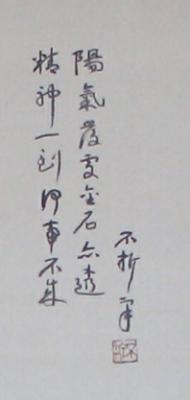 陽氣發處金石亦透
精神一到何事不成
不折筆